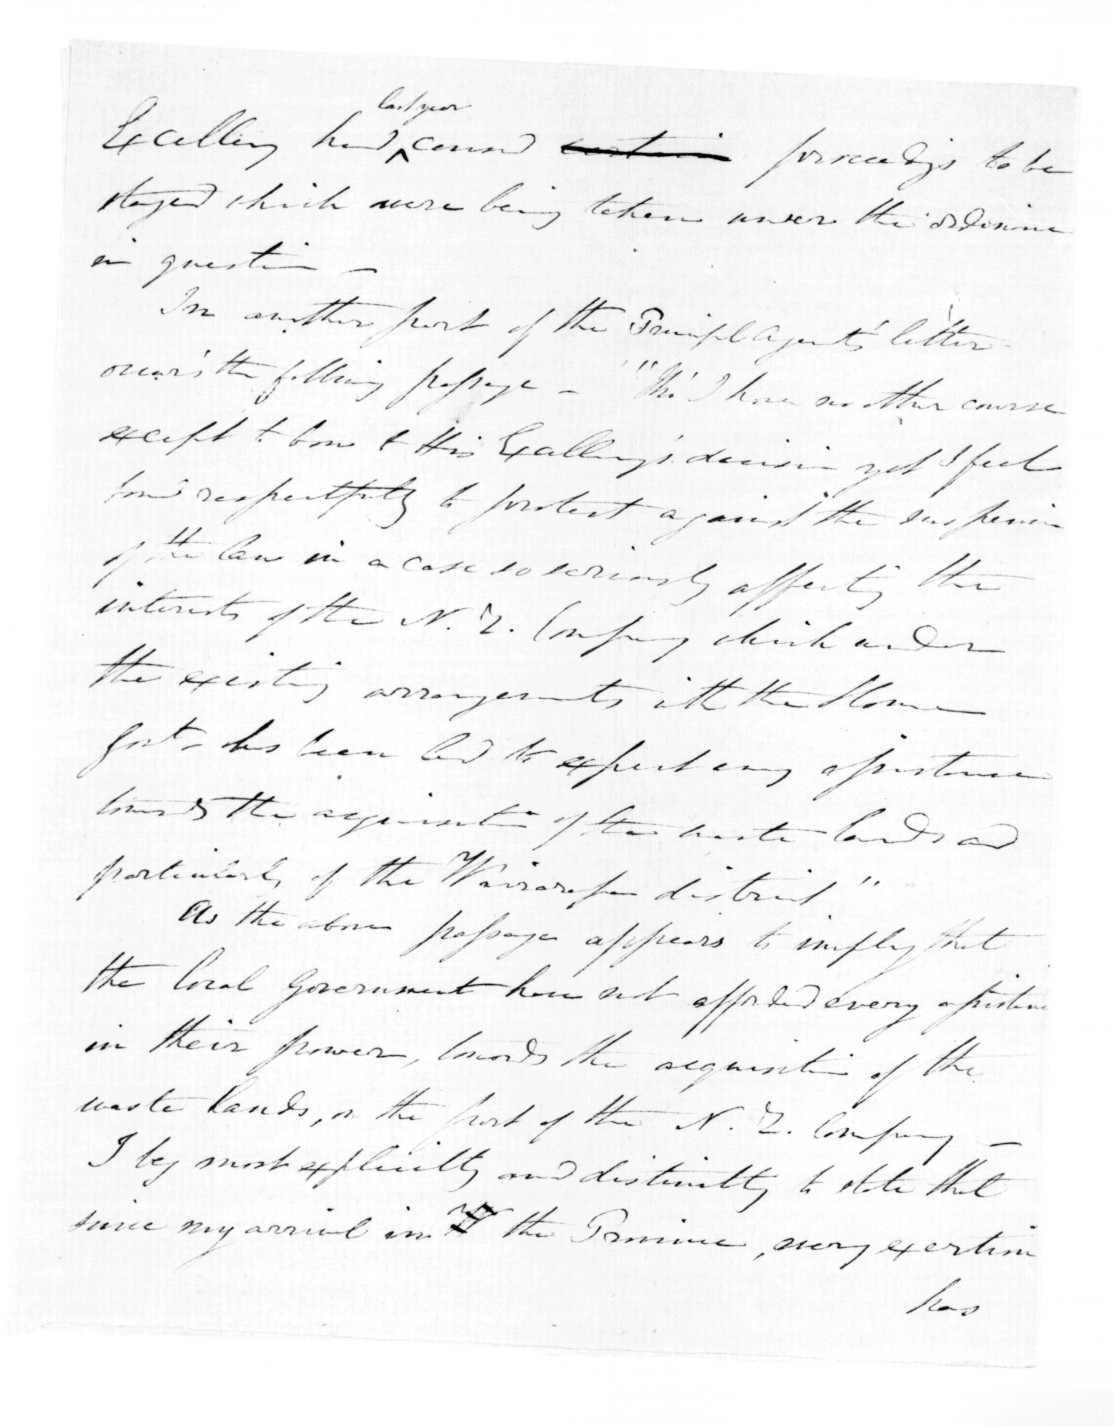 last year
Excellency had caused certain proceedings to be
stayed which were being taken under the ordinance
in question —
In another part of the Principal Agent's letter
occurs the following passage – "Tho' I have no other course
except to bow to His Excellency's decision yet I feel
bound respectfully to protest against the suspension
of the law in a case so seriously affecting the
interests of the N. Z. Company which under
the existing arrangements with the Home
Govt. has been led to expect every assistance
towards the acquisition of the waste lands and
particularly of the Wairarapa district"
As the above passage appears to imply that
the local Government have not afforded every assistance
in their power, towards the acquisition of the
waste lands, on the part of the N. Z. Company —
I beg most explicitly and distinctly to state that
since my arrival in the Province, every exertion
has